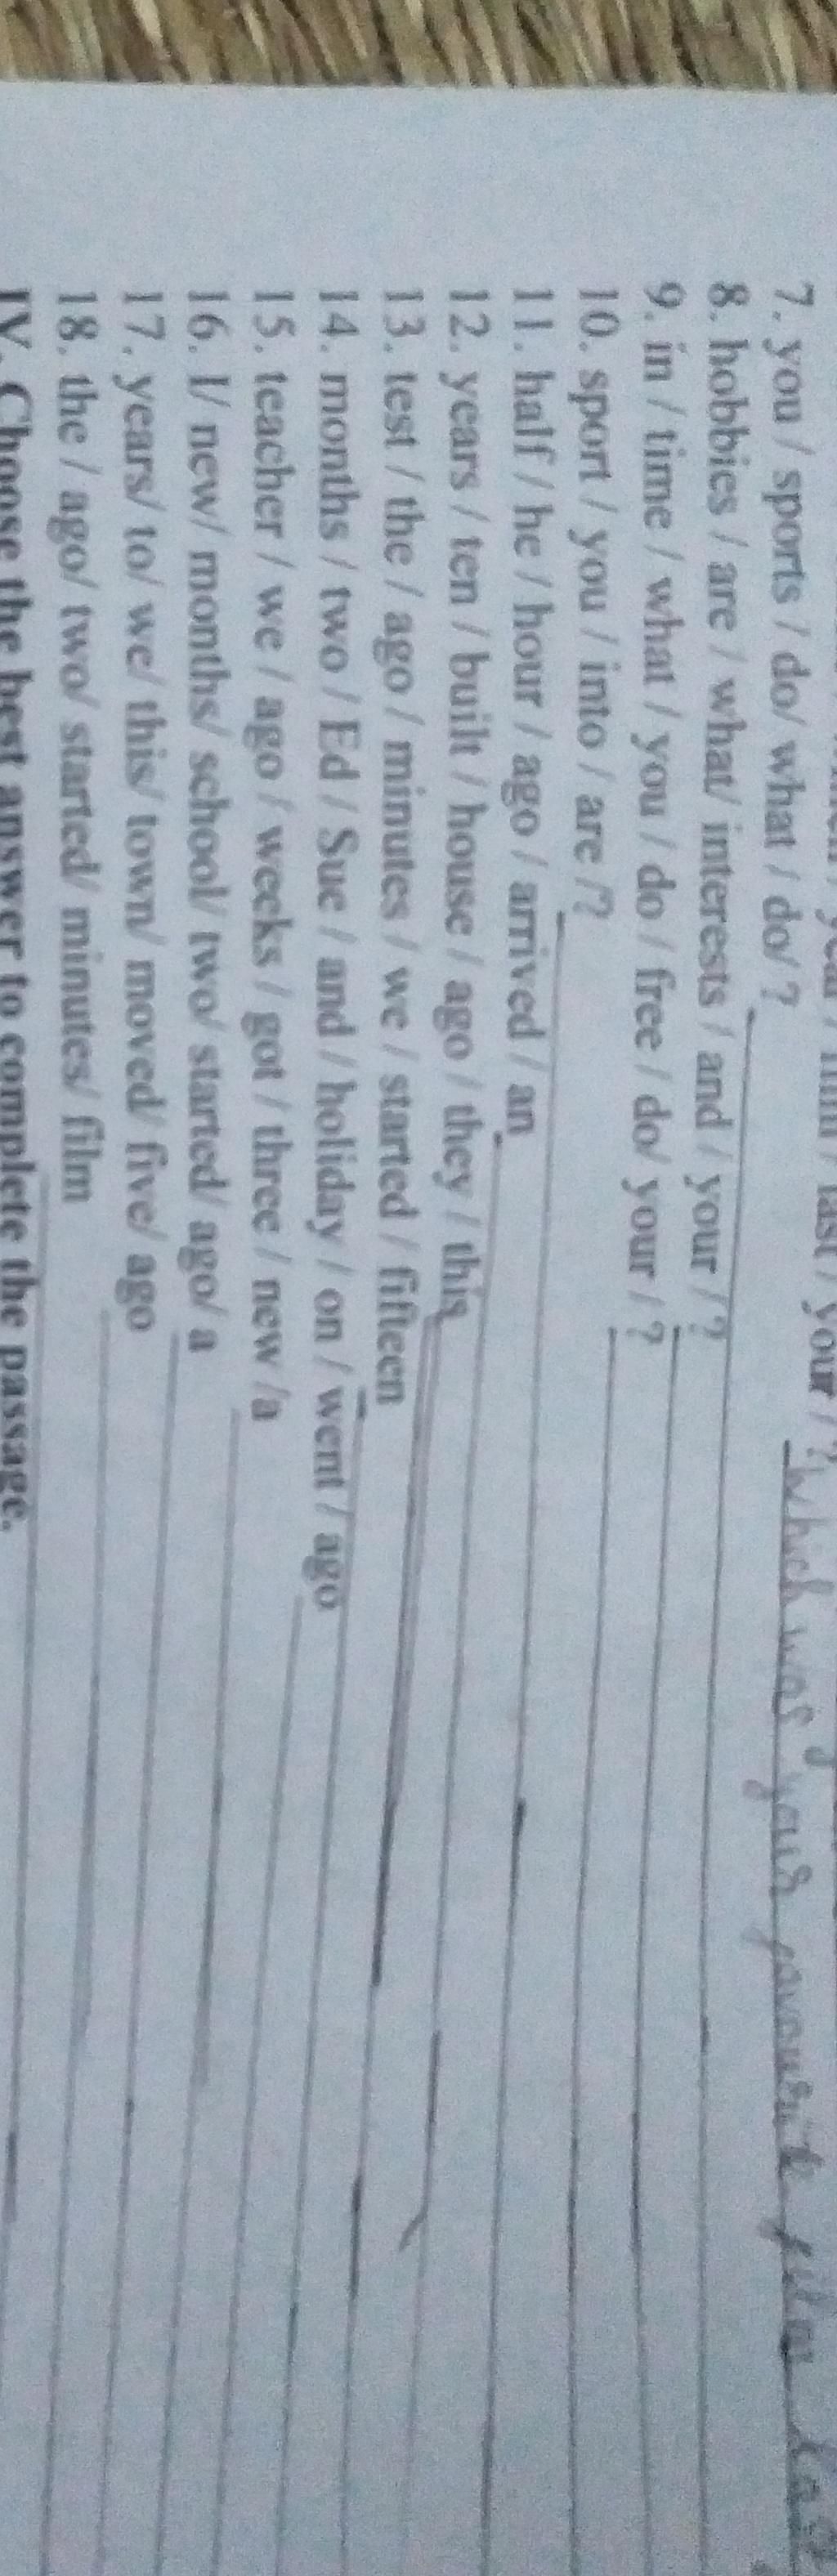 last / your / ? which was your
7. you / sports / do/ what / do/ ?
8. hobbies / are / what/ interests / and / your / ?
9. in / time / what / you / do / free / do/ your / ?
10. sport / you / into / are /?
11. half / he / hour / ago / arrived / an
12. years / ten / built / house / ago / they / this
13. test / the / ago / minutes / we / started / fifteen
14. months / two / Ed / Sue / and / holiday / on / went / ago
15. teacher / we / ago / weeks / got / three / new /a
16. I/ new/ months/ school/ two/ started/ ago/ a
17. years/ to/ we/ this/ town/ moved/ five/ ago
18. the / ago/ two/ started/ minutes/ film
IV. Choose the best answer to complete the passage.